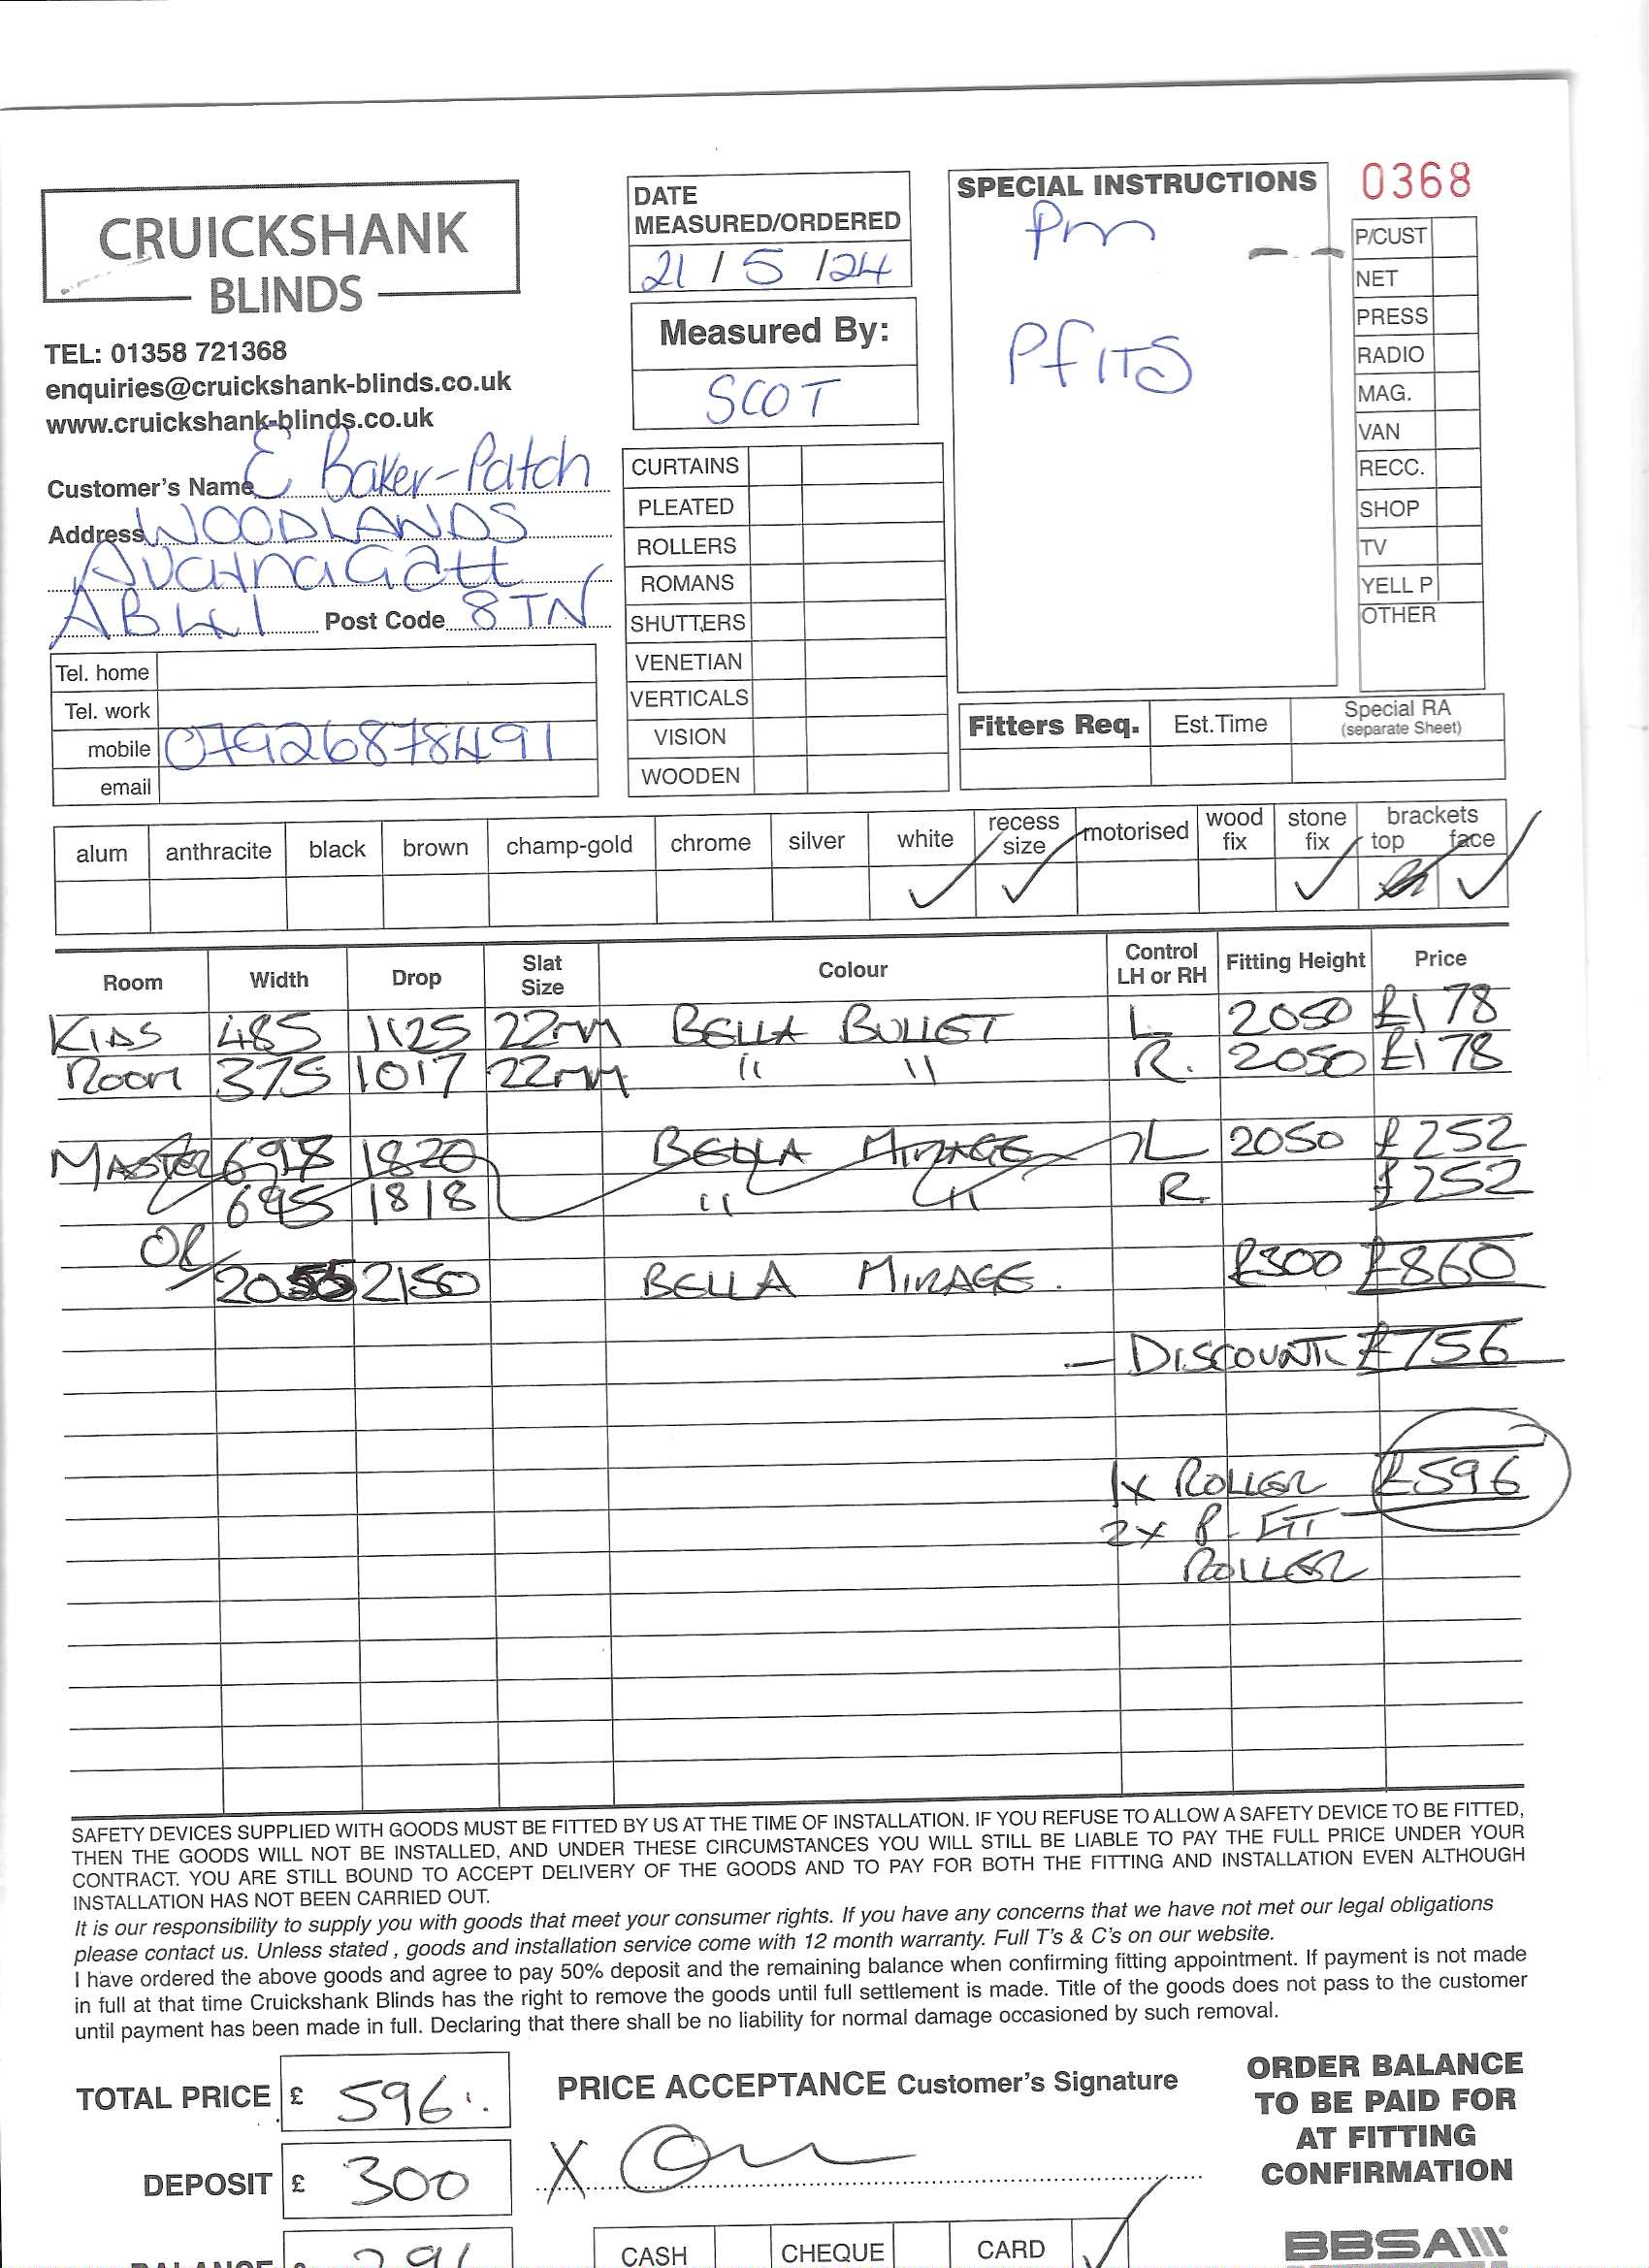 0368
CRUICKSHANK
BLINDS
TEL: 01358 721368
enquiries@cruickshank-blinds.co.uk
www.cruickshank-blinds.co.uk
Customer's Name E Baker-Patch
Address WOODLANDS
AUCHNAGATT
AB41 Post Code 8TN
Tel. home
Tel. work
mobile 07926878491
email
DATE
MEASURED/ORDERED
21 / 5 /24
Measured By:
SCOT
CURTAINS
PLEATED
ROLLERS
ROMANS
SHUTTERS
VENETIAN
VERTICALS
VISION
WOODEN
SPECIAL INSTRUCTIONS
Pm
PfITS
P/CUST
NET
PRESS
RADIO
MAG.
VAN
RECC.
SHOP
TV
YELL P
OTHER
Fitters Req. Est.Time Special RA
(separate Sheet)
alum anthracite black brown champ-gold chrome silver white recess size motorised wood fix stone fix brackets top face
Room Width Drop Slat Size Colour Control LH or RH Fitting Height Price
KIDS 485 1125 22mm BELLA BULLET L 2050 £178
ROOM 375 1017 22mm " " R. 2050 £178
MASTER 698 1820 BELLA MIRAGE L 2050 £252
695 1818 " " R £252
OR
2150 BELLA MIRAGE. £300 £860
- DISCOUNT £756
1x ROLLER £596
2x P-FIT
ROLLER
SAFETY DEVICES SUPPLIED WITH GOODS MUST BE FITTED BY US AT THE TIME OF INSTALLATION. IF YOU REFUSE TO ALLOW A SAFETY DEVICE TO BE FITTED,
THEN THE GOODS WILL NOT BE INSTALLED, AND UNDER THESE CIRCUMSTANCES YOU WILL STILL BE LIABLE TO PAY THE FULL PRICE UNDER YOUR
CONTRACT. YOU ARE STILL BOUND TO ACCEPT DELIVERY OF THE GOODS AND TO PAY FOR BOTH THE FITTING AND INSTALLATION EVEN ALTHOUGH
INSTALLATION HAS NOT BEEN CARRIED OUT.
It is our responsibility to supply you with goods that meet your consumer rights. If you have any concerns that we have not met our legal obligations
please contact us. Unless stated , goods and installation service come with 12 month warranty. Full T's & C's on our website.
I have ordered the above goods and agree to pay 50% deposit and the remaining balance when confirming fitting appointment. If payment is not made
in full at that time Cruickshank Blinds has the right to remove the goods until full settlement is made. Title of the goods does not pass to the customer
until payment has been made in full. Declaring that there shall be no liability for normal damage occasioned by such removal.
TOTAL PRICE £ 596.
DEPOSIT £ 300
BALANCE £ 296
PRICE ACCEPTANCE Customer's Signature
X
CASH CHEQUE CARD
ORDER BALANCE
TO BE PAID FOR
AT FITTING
CONFIRMATION
BBSA